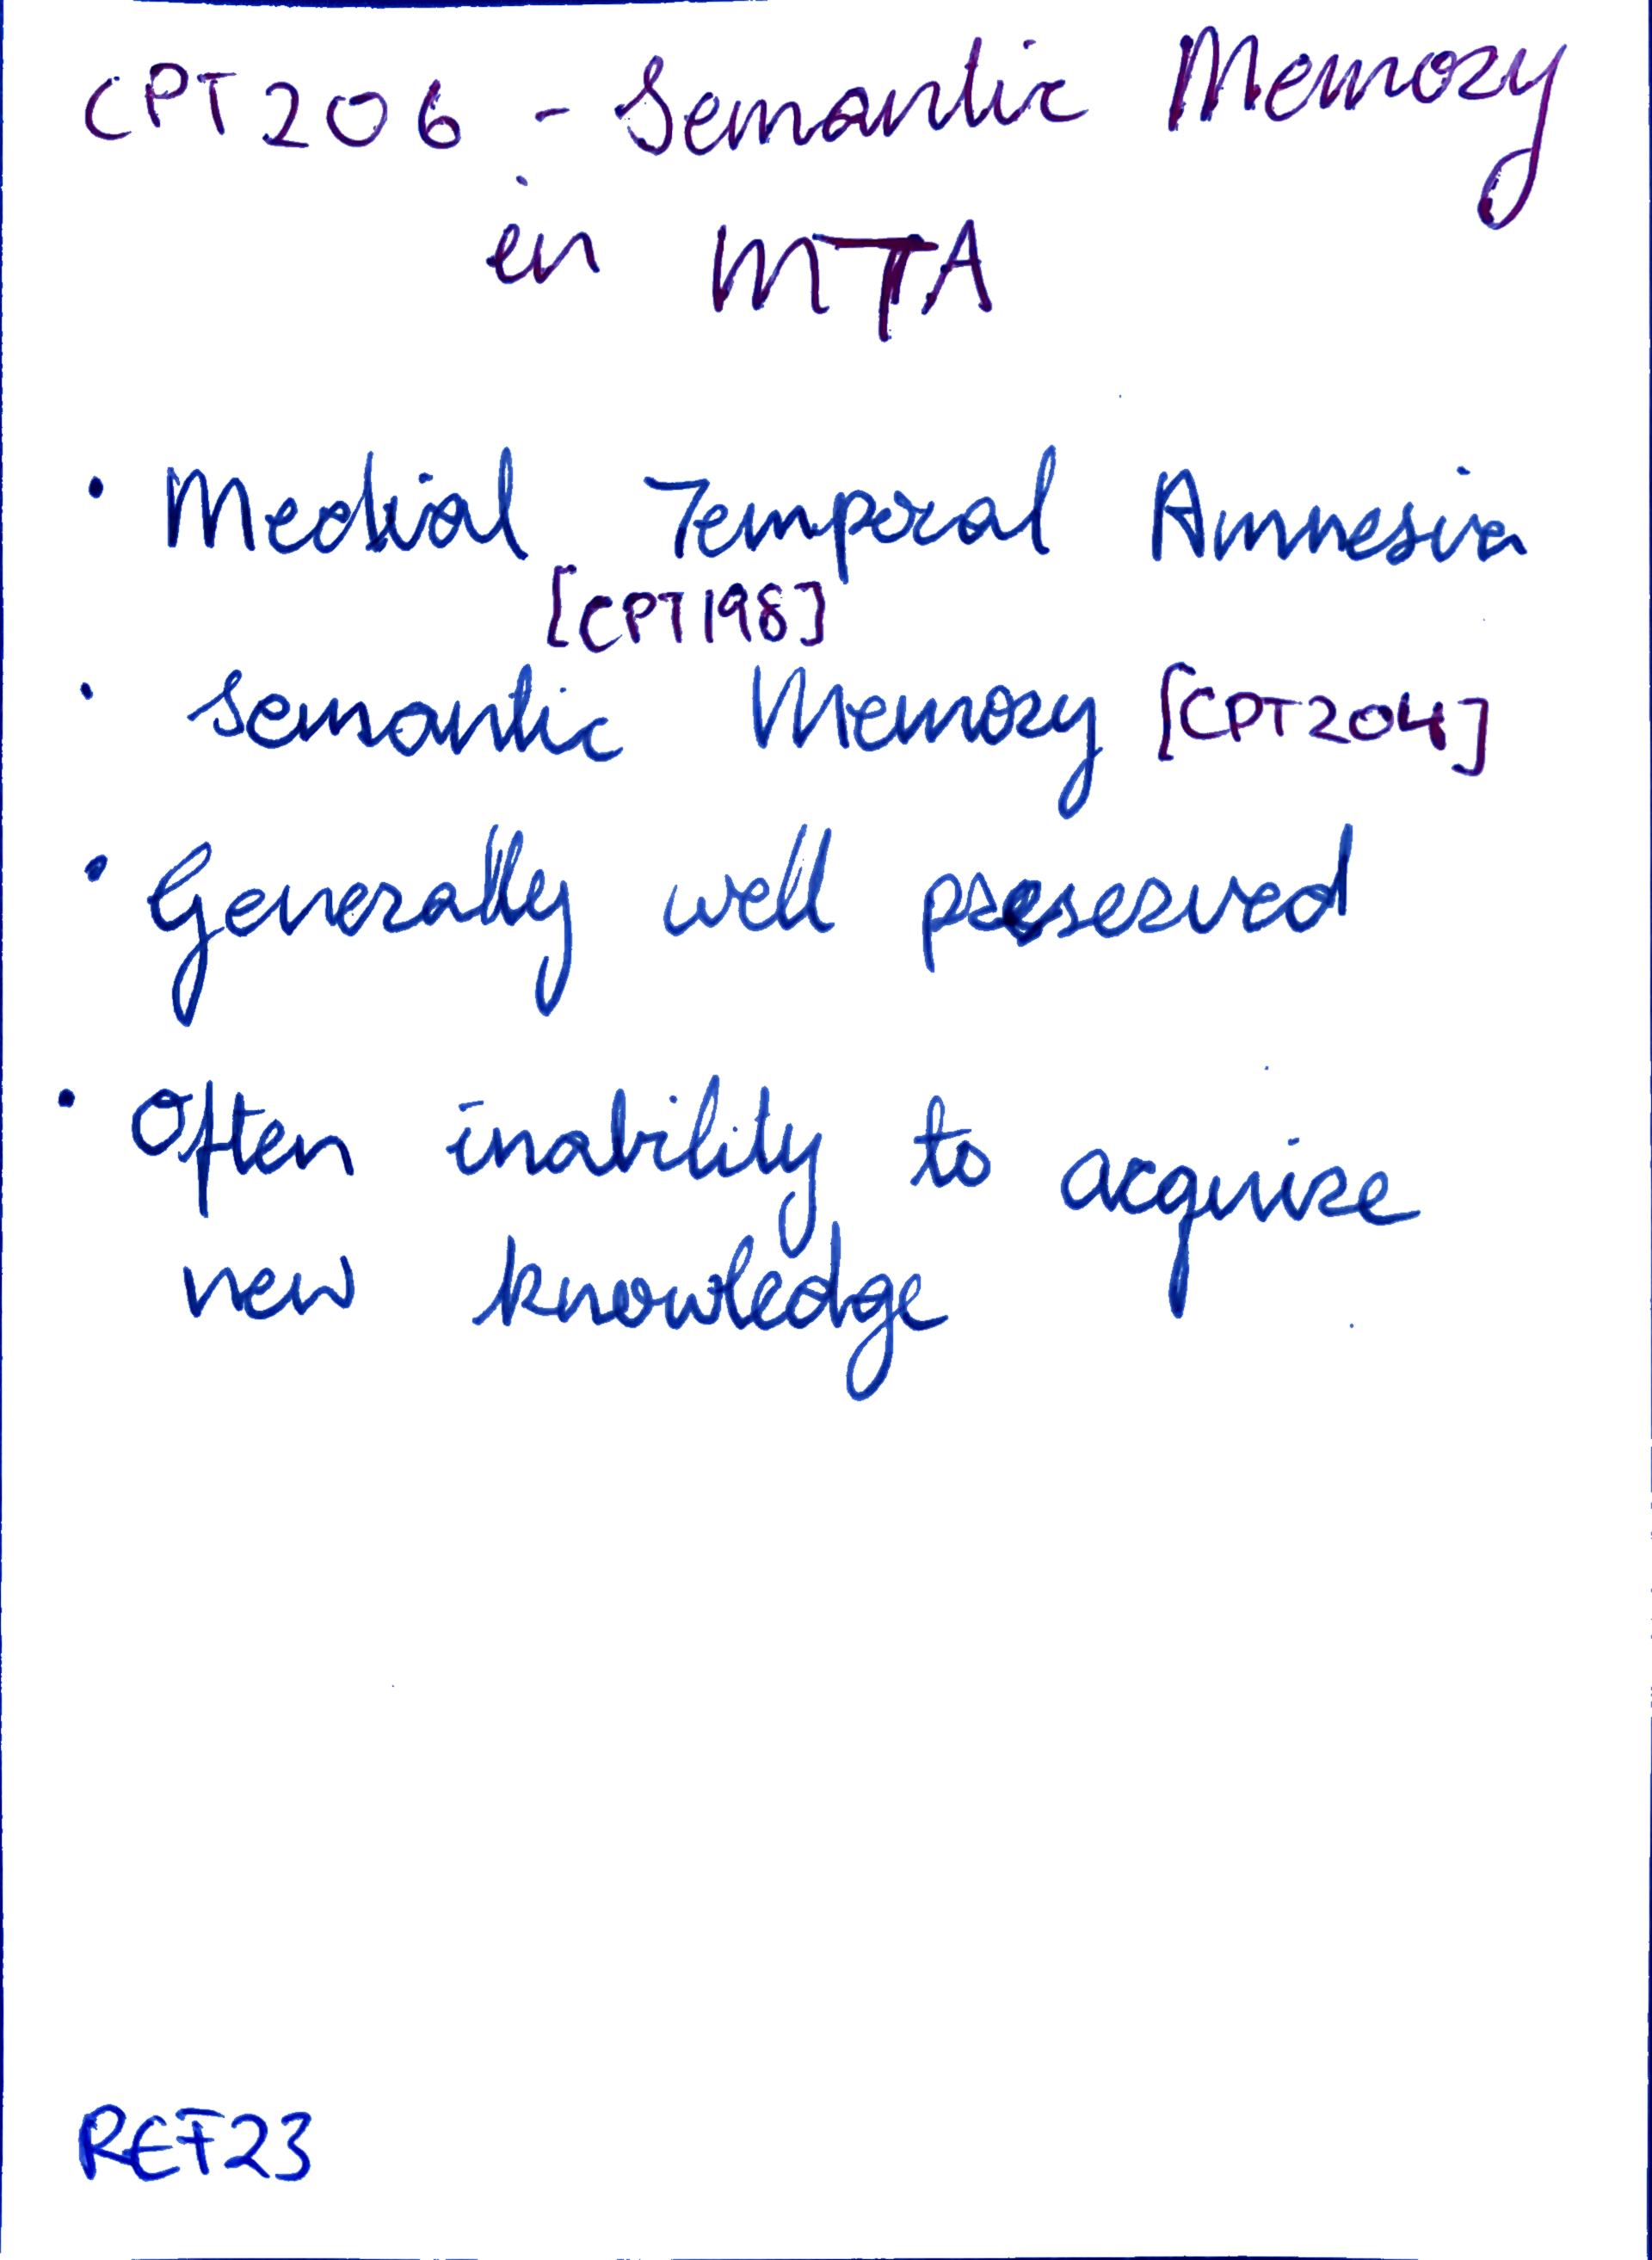 CPT206 - Semantic Memory
in MTA
• Medial Temporal Amnesia
[CPT198]
• Semantic Memory [CPT204]
• Generally well preserved
• Often inability to acquire
new knowledge
REF23